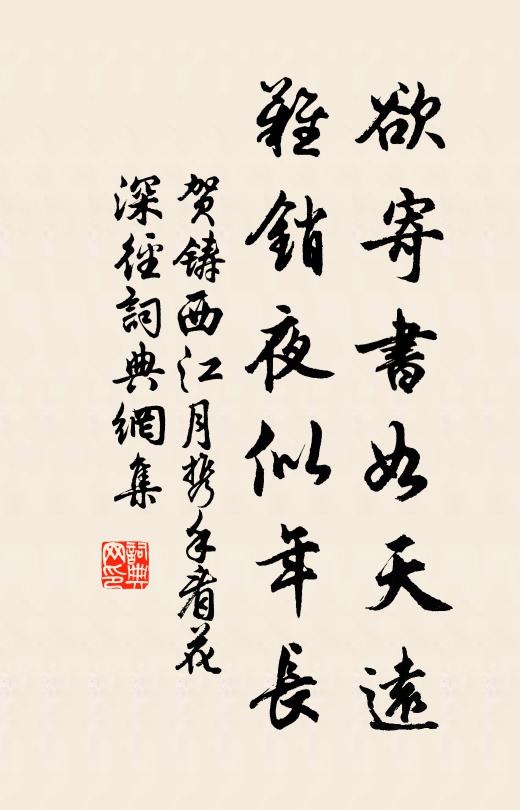 欲寄書如天遠
難銷夜似年長
贺鑄西江月携手看花
深徑詞典網集
詞典
网印